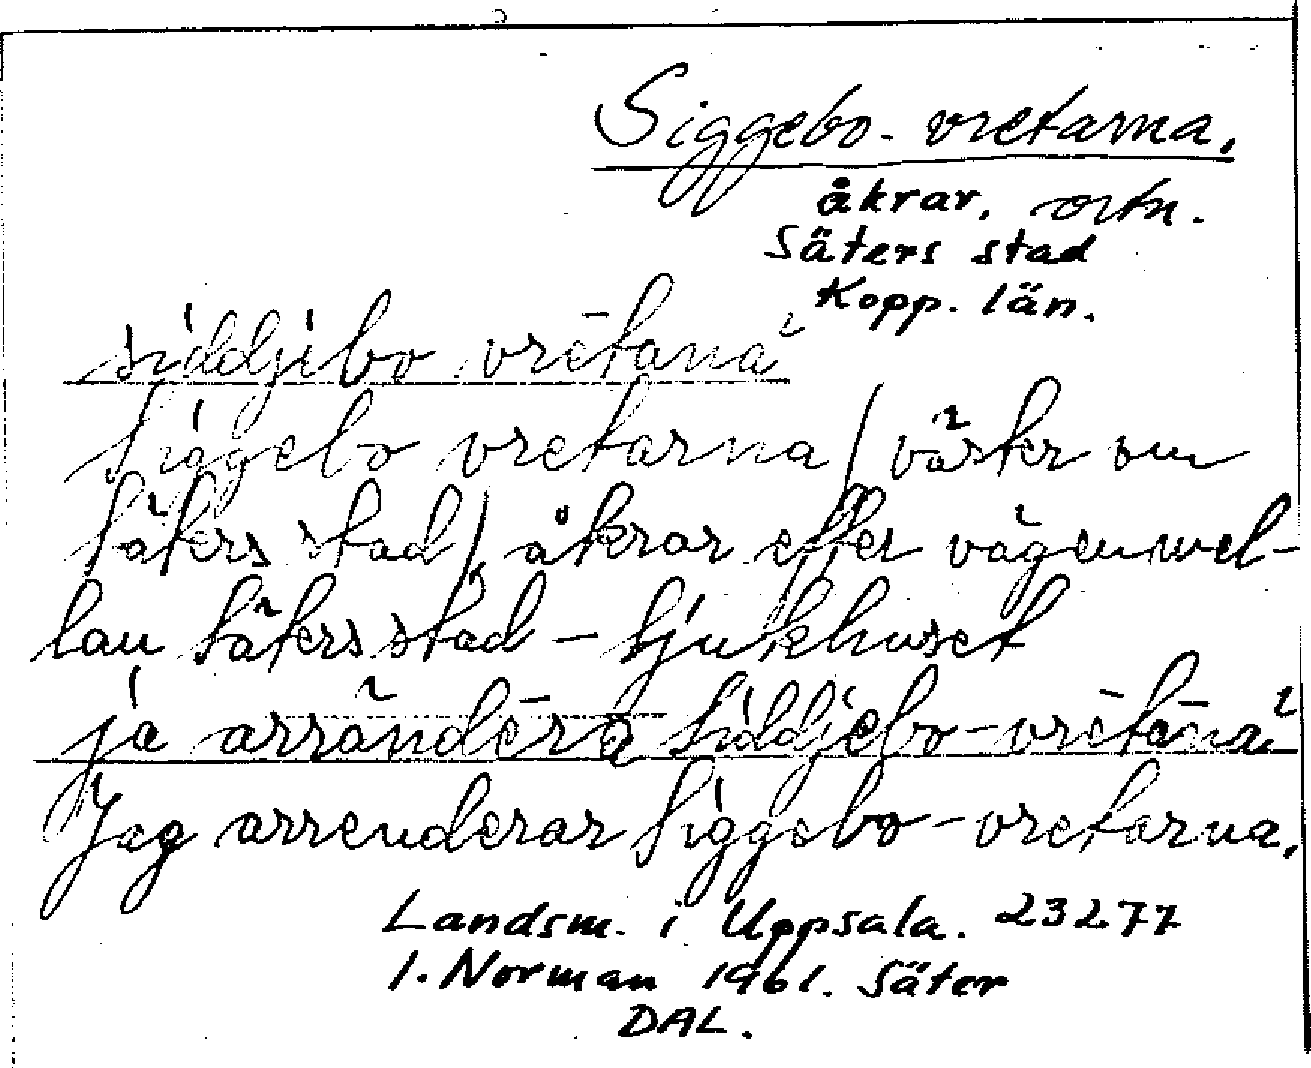 Siggebo-vretarna.
åkrar, ortn.
Säters stad
Kopp. län.
siddjibo vrētana
Siggebo vretarna (väster om
Säters stad), åkrar efter vägen mel-
lan Säters stad – Sjukhuset
ja arrändēra Siddjebo-vrētena
Jag arrenderar Siggebo-vretarna.
Landsm. i Uppsala. 23277
I. Norman 1961. Säter
DAL.